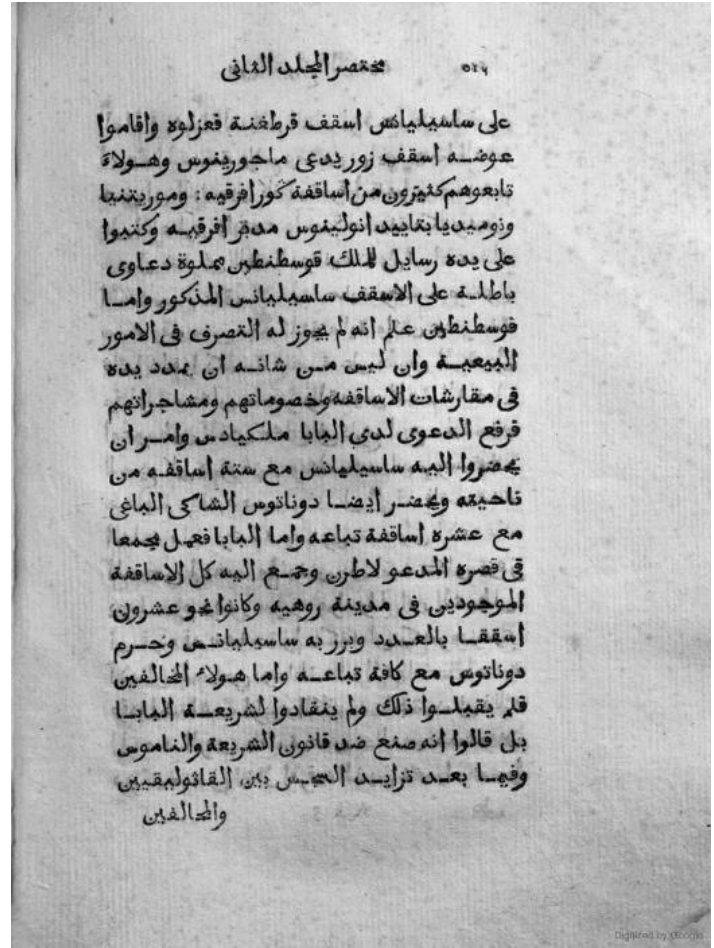 مختصر المجلد الثانى
على ساسيليانس اسقف قرطغنة فعزلوه واقاموا
عوضـه اسقف زور يدعى ماجورينوس وهـولاة
تابعوهم كثيرون من اساقفة كور افرقيه : وموريتنيا
ونوميديا بتاييد انولينوس مدبر افرقيـه وكتبوا
على يده رسايل للملك قوسطنطين مملوة دعاوى
باطلـة على الاسقف ساسيليانس المذكور وامـا
قوسطنطين علم انه لم يجوز له التصرف فى الامور
البيعيـة وان ليس مـن شانـه ان يمدد يده
فى مقارشات الاساقفه وخصوماتهم ومشاجراتهم
فرفع الدعوى لدي البابا ملكيادس وامـر ان
يحضروا اليه ساسيليانس مع ستة اساقفـه من
ناحيته ويحضـر ايضـا دوناتوس الشاكى الباغى
مع عشره اساقفة تباعه واما البابا فعمـل مجمعا
فى قصره المدعو لاطرن وجمـع اليه كل الاساقفة
الموجودين فى مدينة روهيه وكانوا نحو عشرون
اسقفـا بالعـدد وبرر به ساسيليانـس وحـرم
دوناتوس مع كافة تباعـه واما هـولاء المخالفين
فلم يقبلـوا ذلك ولم ينقادوا لشريعـة البابـا
بل قالوا انه صنع ضد قانون الشريعة والناموس
وفيمـا بعـد تزايـد السجـس بين القاثوليقيين
والمخالفين
Digitized by Google